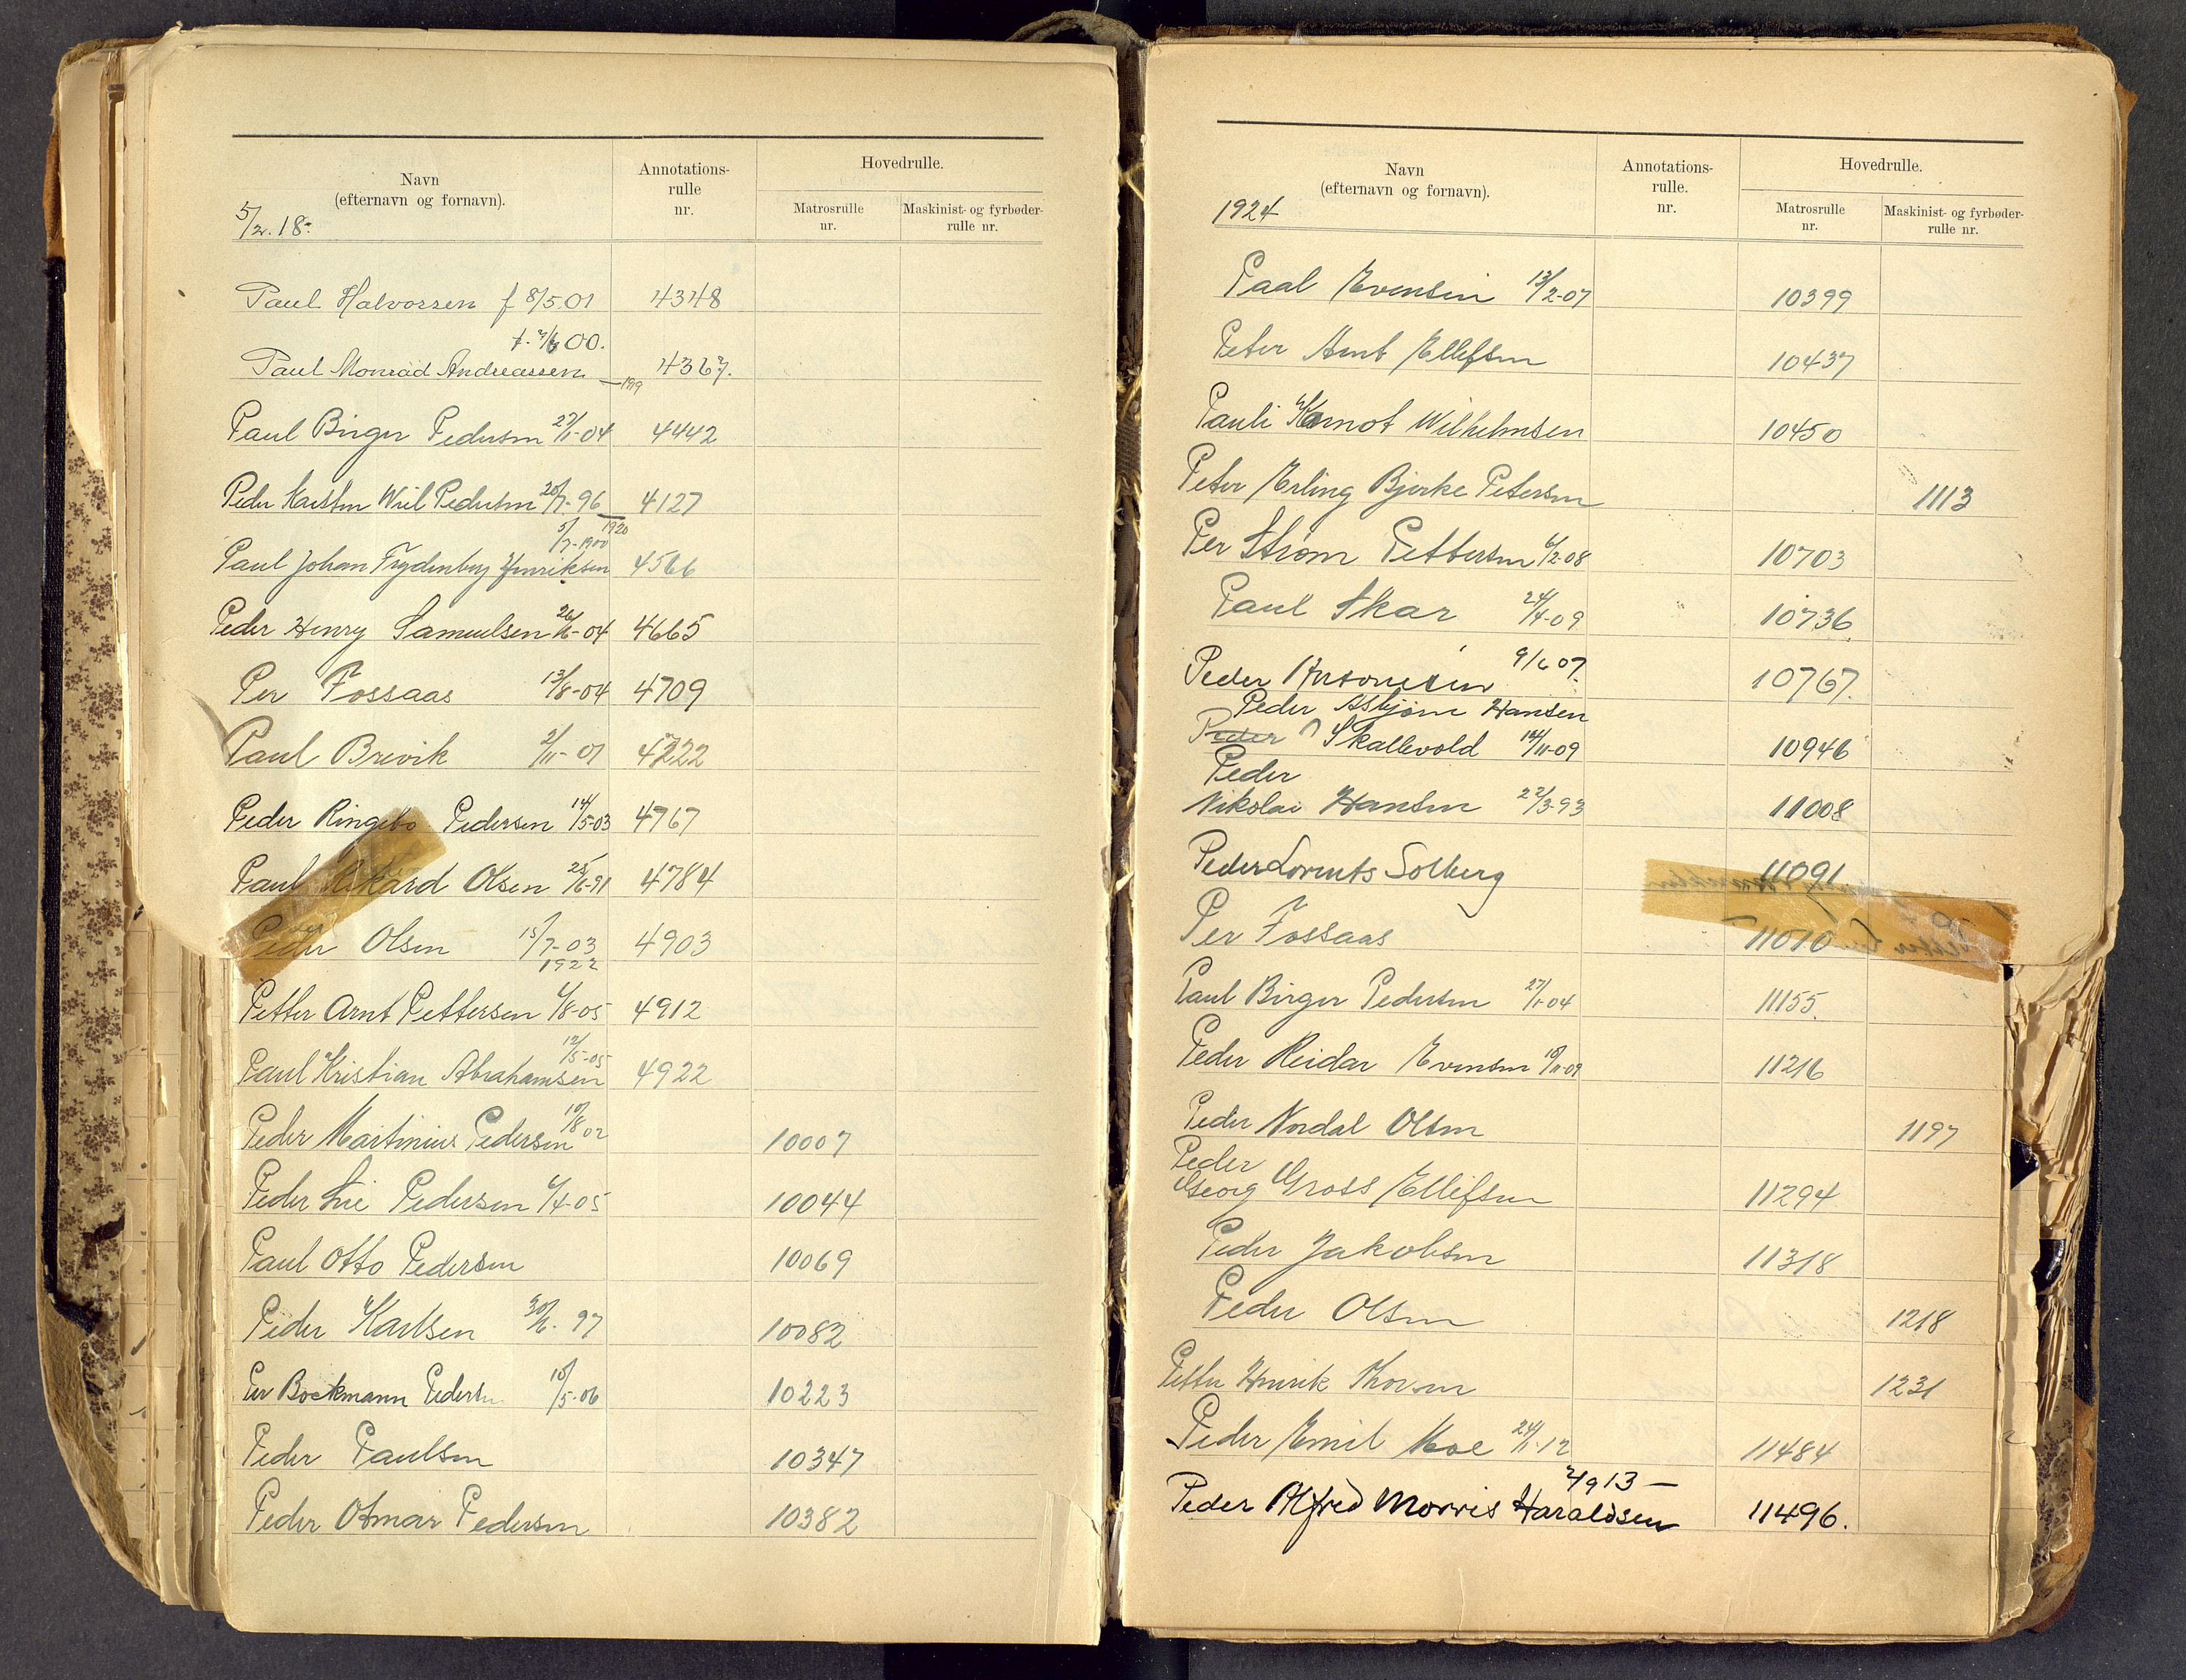 Navn
(efternavn og fornavn).
Annotations-
rulle
nr.
Hovedrulle.
Matrosrulle
nr.
Maskinist- og fyrbøder-
rulle nr.
5/2. 18.
Paul Halvorsen f 8/5.01 4348
f. 7/6 00.
Paul Monrad Andreassen 4367.
1919
Paul Birger Pedersen 27/1-04 4442
Peder Karsten Wiel Pedersen 20/7-96 4127
1920
5/7-1900
Paul Johan Frydenberg Henriksen 4566
Peder Henry Samuelsen 26/6-04 4665
Per Fossaas 13/8-04 4709
Paul Brevik 2/11-01 4722
Peder Ringebo Pedersen 14/5-03 4767
Paul Rikard Olsen 25/6-91 4784
Peder Olsen 15/7-03 4903
1922
Petter Arnt Pettersen 4/8-05 4912
12/5-05
Paul Kristian Abrahamsen 4922
Peder Martinius Pedersen 10/8 02 10007
Peder Lie Pedersen 4/4-05 10044
Paul Otto Pedersen 10069
Peder Karlsen 30/6-97 10082
Per Bockmann Peders 10/5-06 10223
Peder Paulsen 10347
Peder Otmar Pedersen 10382
Navn
(efternavn og fornavn).
Annotations-
rulle.
nr.
Hovedrulle.
Matrosrulle
nr.
Maskinist- og fyrbøder-
rulle nr.
1924
Paal Evensen 13/2-07 10399
Peter Arnt Ellefsen 10437
Pauli Karnot Wilhelmsen 10450
Peter Erling Bjerke Petersen 1113
Per Strøm Pettersen 6/2-08 10703
Paul Skar 24/4-09 10736
9/6 07.
Peder Antonisen 10767.
Peder Asbjørn Hansen
Peder Skallevold 14/11-09 10946
Peder
Nikolai Hansen 22/3-93 11008
Peder Lorents Solberg 11091
Per Fossaas 11010
Paul Birger Pedersen 27/1-04 11155.
Peder Reidar Evensen 10/11-09 11216
Peder Nordal Olsen 1197
Peder
Georg Gross Ellefsen 11294
Peder Jakobsen 11318
Peder Olsen 1218
Petter Henrik Thorsen 1231
Peder Emil Moe 24/1-12 11484
4/9 13 —
Peder Alfred Morris Haraldsen 11496.